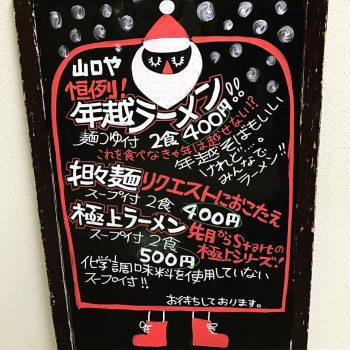 山口や
恒例!
年越ラーメン!!
麺つゆ付 2食 400円
これを食べなきゃ年は越せない!?
年越そばもいい
けれど…
みんなで
ラーメン!!
担々麺 リクエストにおこたえ
スープ付 2食 400円
極上ラーメン 先月からStartの
スープ付 2食 極上シリーズ!
500円
化学調味料を使用していない
スープ付!!
お待ちしております。